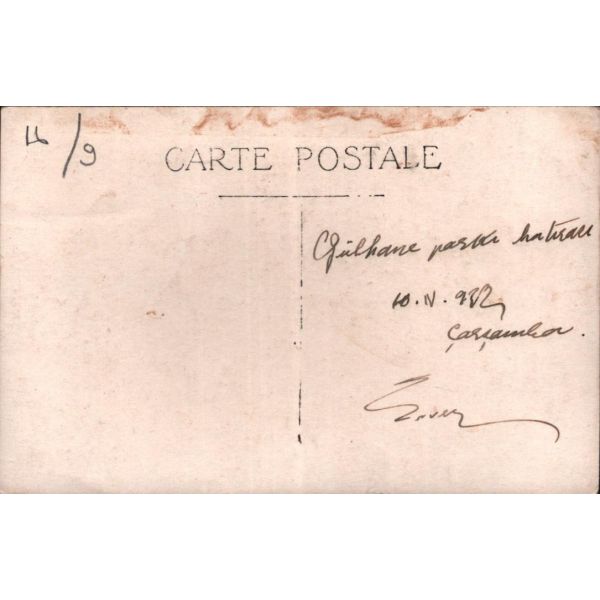 CARTE POSTALE
Gülhane parkı hatırası
10.IV.932
Çarşamba.